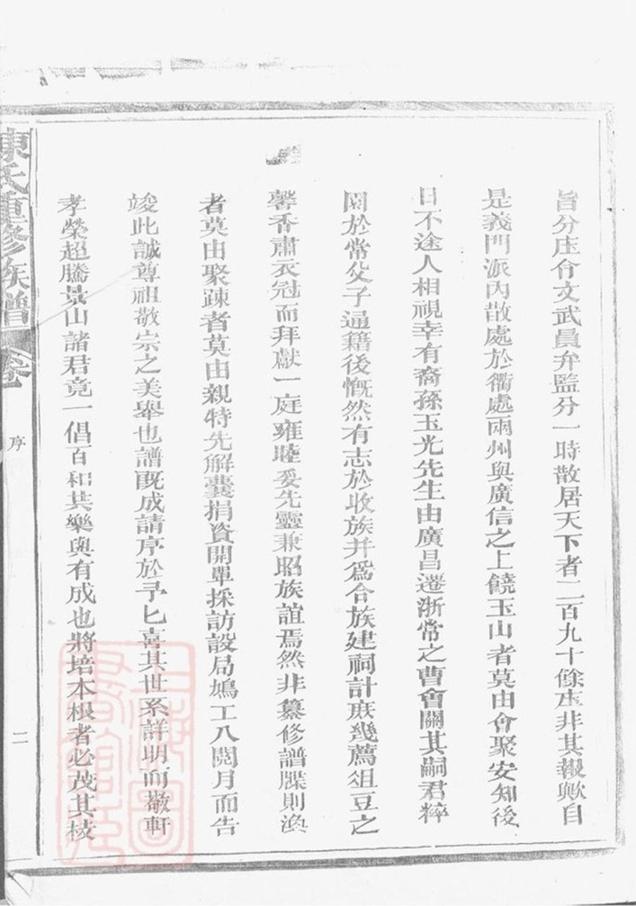 旨分庄合文武員弁監分一時散居天下者二百九十餘庄非其報歟自
是義門派內散處於衢處兩州與廣信之上饒玉山者莫由會聚安知後
日不途人相視幸有裔孫玉光先生由廣昌遷浙常之曹會關其嗣君粹
園於常父子通籍後慨然有志於收族并爲合族建祠計庶幾薦俎豆之
馨香肅衣冠而拜獻一庭雍睦爰先靈兼昭族誼焉然非纂修譜牒則渙
者莫由聚疎者莫由親特先解囊捐資開單採訪設局鳩工八閱月而告
竣此誠尊祖敬宗之美舉也譜既成請序於予匕喜其世系詳明而敬軒
孝榮超騰景山諸君竟一倡百和其樂與有成也將培本根者必茂其枝
陳氏重修族譜 卷 序 二